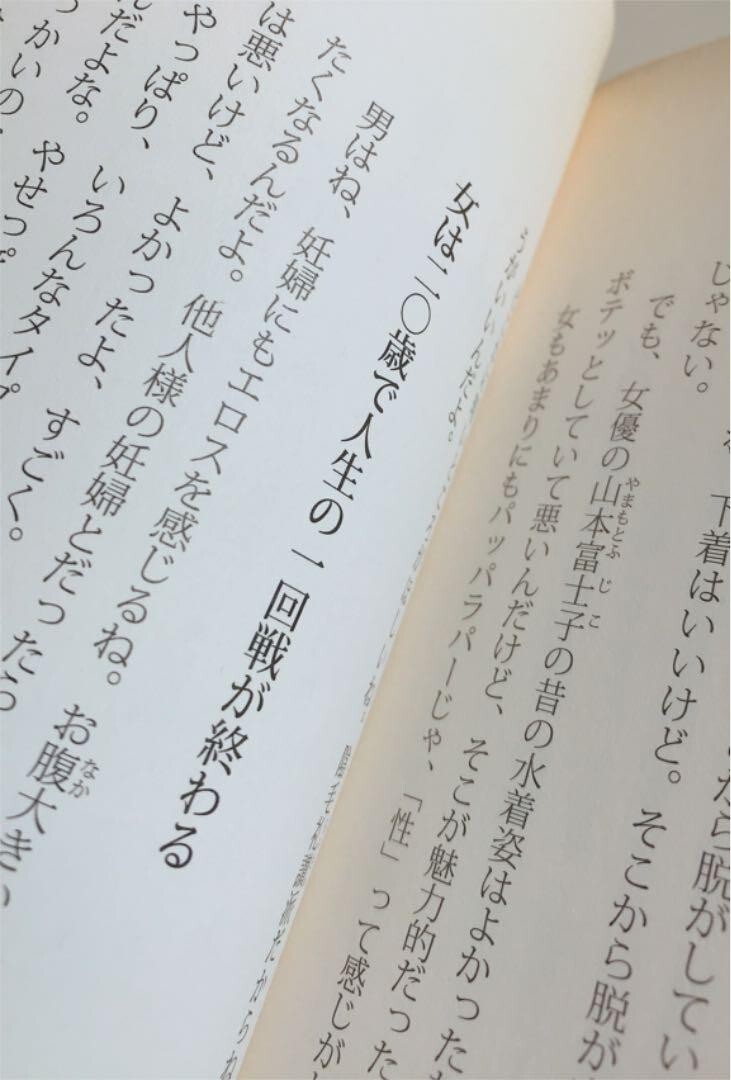 じゃない。
下着はいいけど。そこから脱が
から脱がしてい
でも、女優の山本富士子の昔の水着姿はよかった
やまもとふじこ
ボテッとしていて悪いんだけど、そこが魅力的だった
女もあまりにもパッパラパーじゃ、「性」って感じがし
うがいいんだよ。
女は二〇歳で人生の一回戦が終わる
男はね、妊婦にもエロスを感じるね。お腹大きい
なか
たくなるんだよ。他人様の妊婦とだったら
は悪いけど、よかったよ、すごく。
やっぱり、いろんなタイプ
んだよな。やせっぽ
っかいの